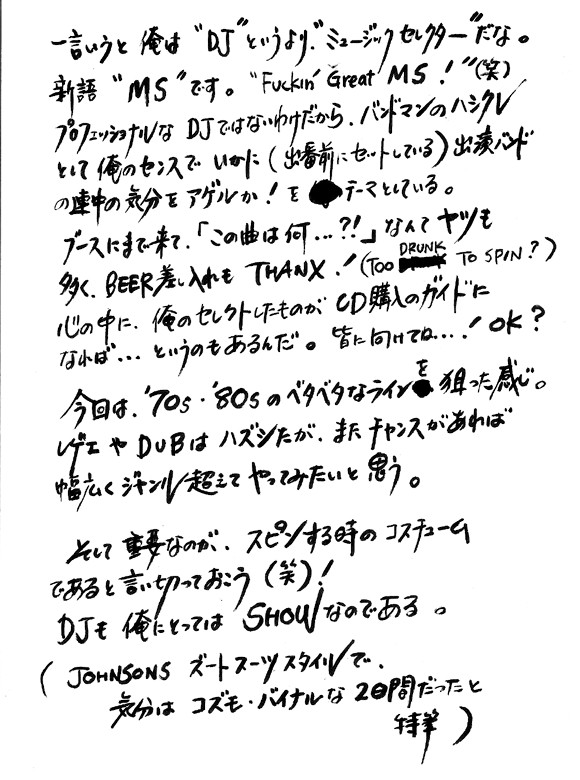 一言いうと俺は“DJ”というより、“ミュージックセレクター”だな。
新語“MS”です。“Fuckin' Great MS!”(笑)
プロフェッショナルなDJではないわけだから、バンドマンのハシクレ
として俺のセンスでいかに(出番前にセットしている)出演バンド
の連中の気分をアゲルか!をテーマとしている。
ブースにまで来て、「この曲は何…?!」なんてヤツも
多く、BEER差し入れもTHANX!(TOO DRUNK TO SPIN?)
心の中に、俺のセレクトしたものがCD購入のガイドに
なれば…というのもあるんだ。皆に向けてね…!OK?
今回は、'70s・'80sのベタベタなラインを狙った感じ。
レゲエやDUBはハズシたが、またチャンスがあれば
幅広くジャンル超えてやってみたいと思う。
そして重要なのが、スピンする時のコスチューム
であると言い切っておこう(笑)!
DJも俺にとってはSHOWなのである。
(JOHNSONSズートスーツスタイルで、
気分はコズモ・バイナルな2日間だったと
特筆)